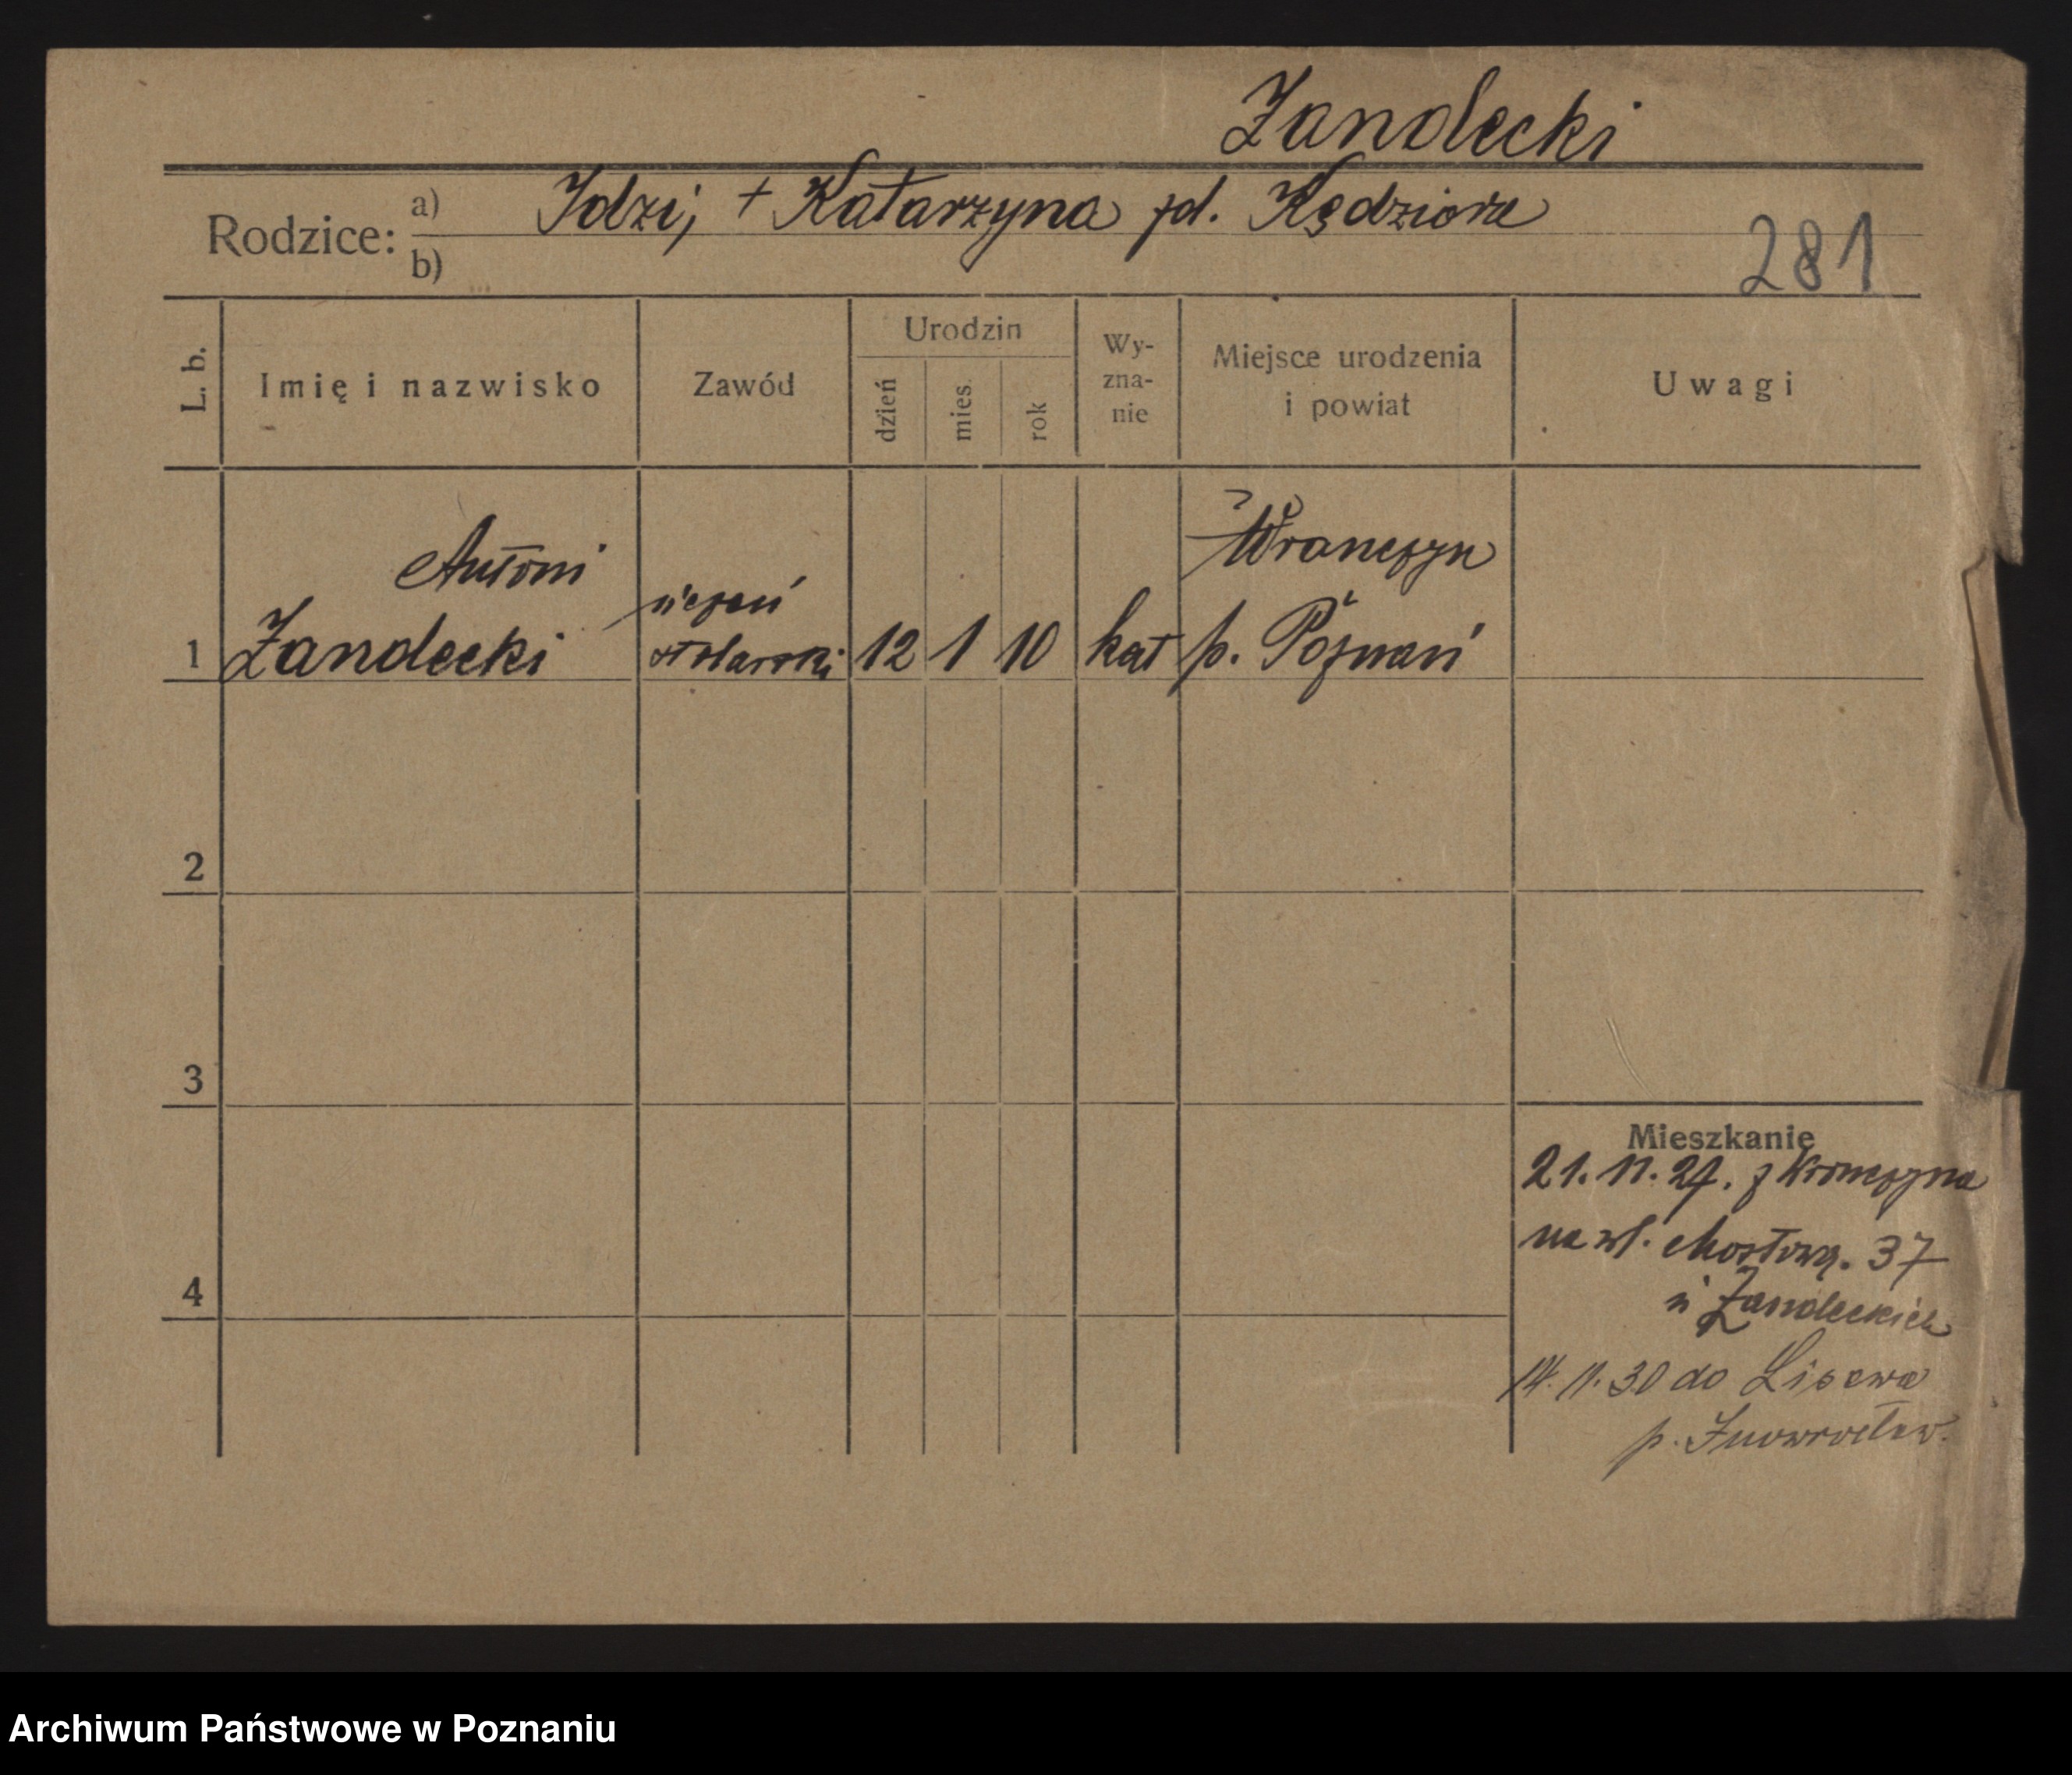 Żandecki
Rodzice:
a) Idzi, + Katarzyna zd. Kędziora
b)
281
L. b.
Imię i nazwisko
Zawód
Urodzin
dzień
mies.
rok
Wy-
zna-
nie
Miejsce urodzenia
i powiat
Uwagi
Antoni
uczeń
Wronczyn
1 Żandecki stolarski 12 1 10 kat p. Poznań
2
3
4
Mieszkanie
21. 11. 27. z Wronczyna
na ul. Mostową. 37
u Żandeckich
14. 11. 30 do Lisewa
p. Inowrocław.
Archiwum Państwowe w Poznaniu